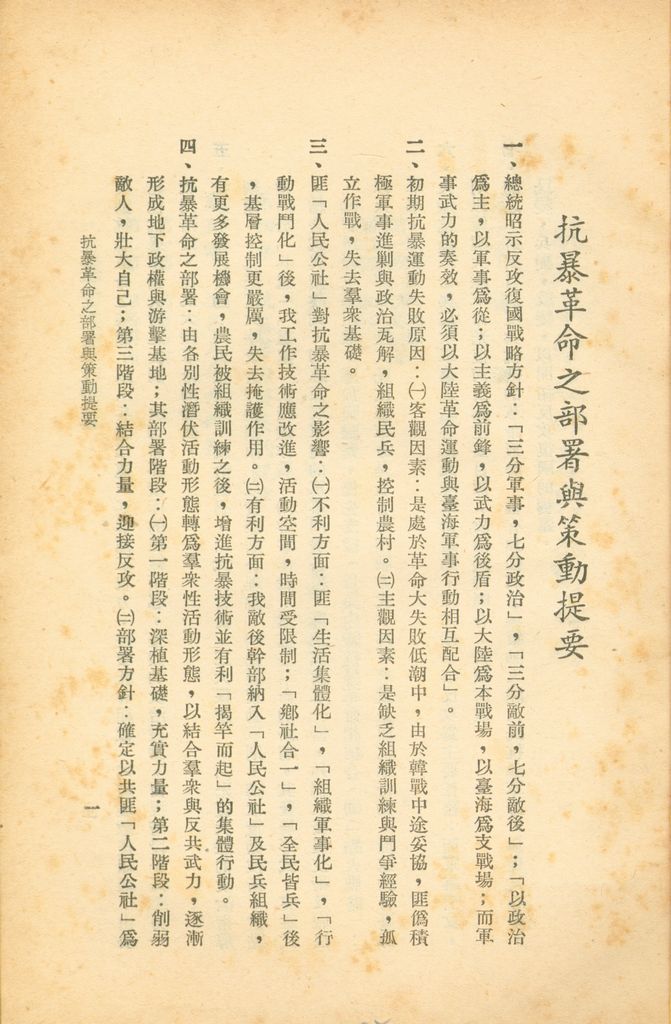 抗暴革命之部署與策動提要
一、總統昭示反攻復國戰略方針：「三分軍事，七分政治」，「三分敵前，七分敵後」；「以政治
爲主，以軍事爲從；以主義爲前鋒，以武力爲後盾；以大陸爲本戰場，以臺海爲支戰場；而軍
事武力的奏效，必須以大陸革命運動與臺海軍事行動相互配合」。
二、初期抗暴運動失敗原因：㈠客觀因素：是處於革命大失敗低潮中，由於韓戰中途妥協，匪僞積
極軍事進剿與政治瓦解，組織民兵，控制農村。㈡主觀因素：是缺乏組織訓練與鬥爭經驗，孤
立作戰，失去羣衆基礎。
三、匪「人民公社」對抗暴革命之影響：㈠不利方面：匪「生活集體化」，「組織軍事化」，「行
動戰鬥化」後，我工作技術應改進，活動空間，時間受限制；「鄉社合一」，「全民皆兵」後
，基層控制更嚴厲，失去掩護作用。㈡有利方面：我敵後幹部納入「人民公社」及民兵組織，
有更多發展機會，農民被組織訓練之後，增進抗暴技術並有利「揭竿而起」的集體行動。
四、抗暴革命之部署：由各別性潛伏活動形態轉爲羣衆性活動形態，以結合羣衆與反共武力，逐漸
形成地下政權與游擊基地；其部署階段：㈠第一階段：深植基礎，充實力量；第二階段：削弱
敵人，壯大自己；第三階段：結合力量，迎接反攻。㈡部署方針：確定以共匪「人民公社」爲
抗暴革命之部署與策動提要
一